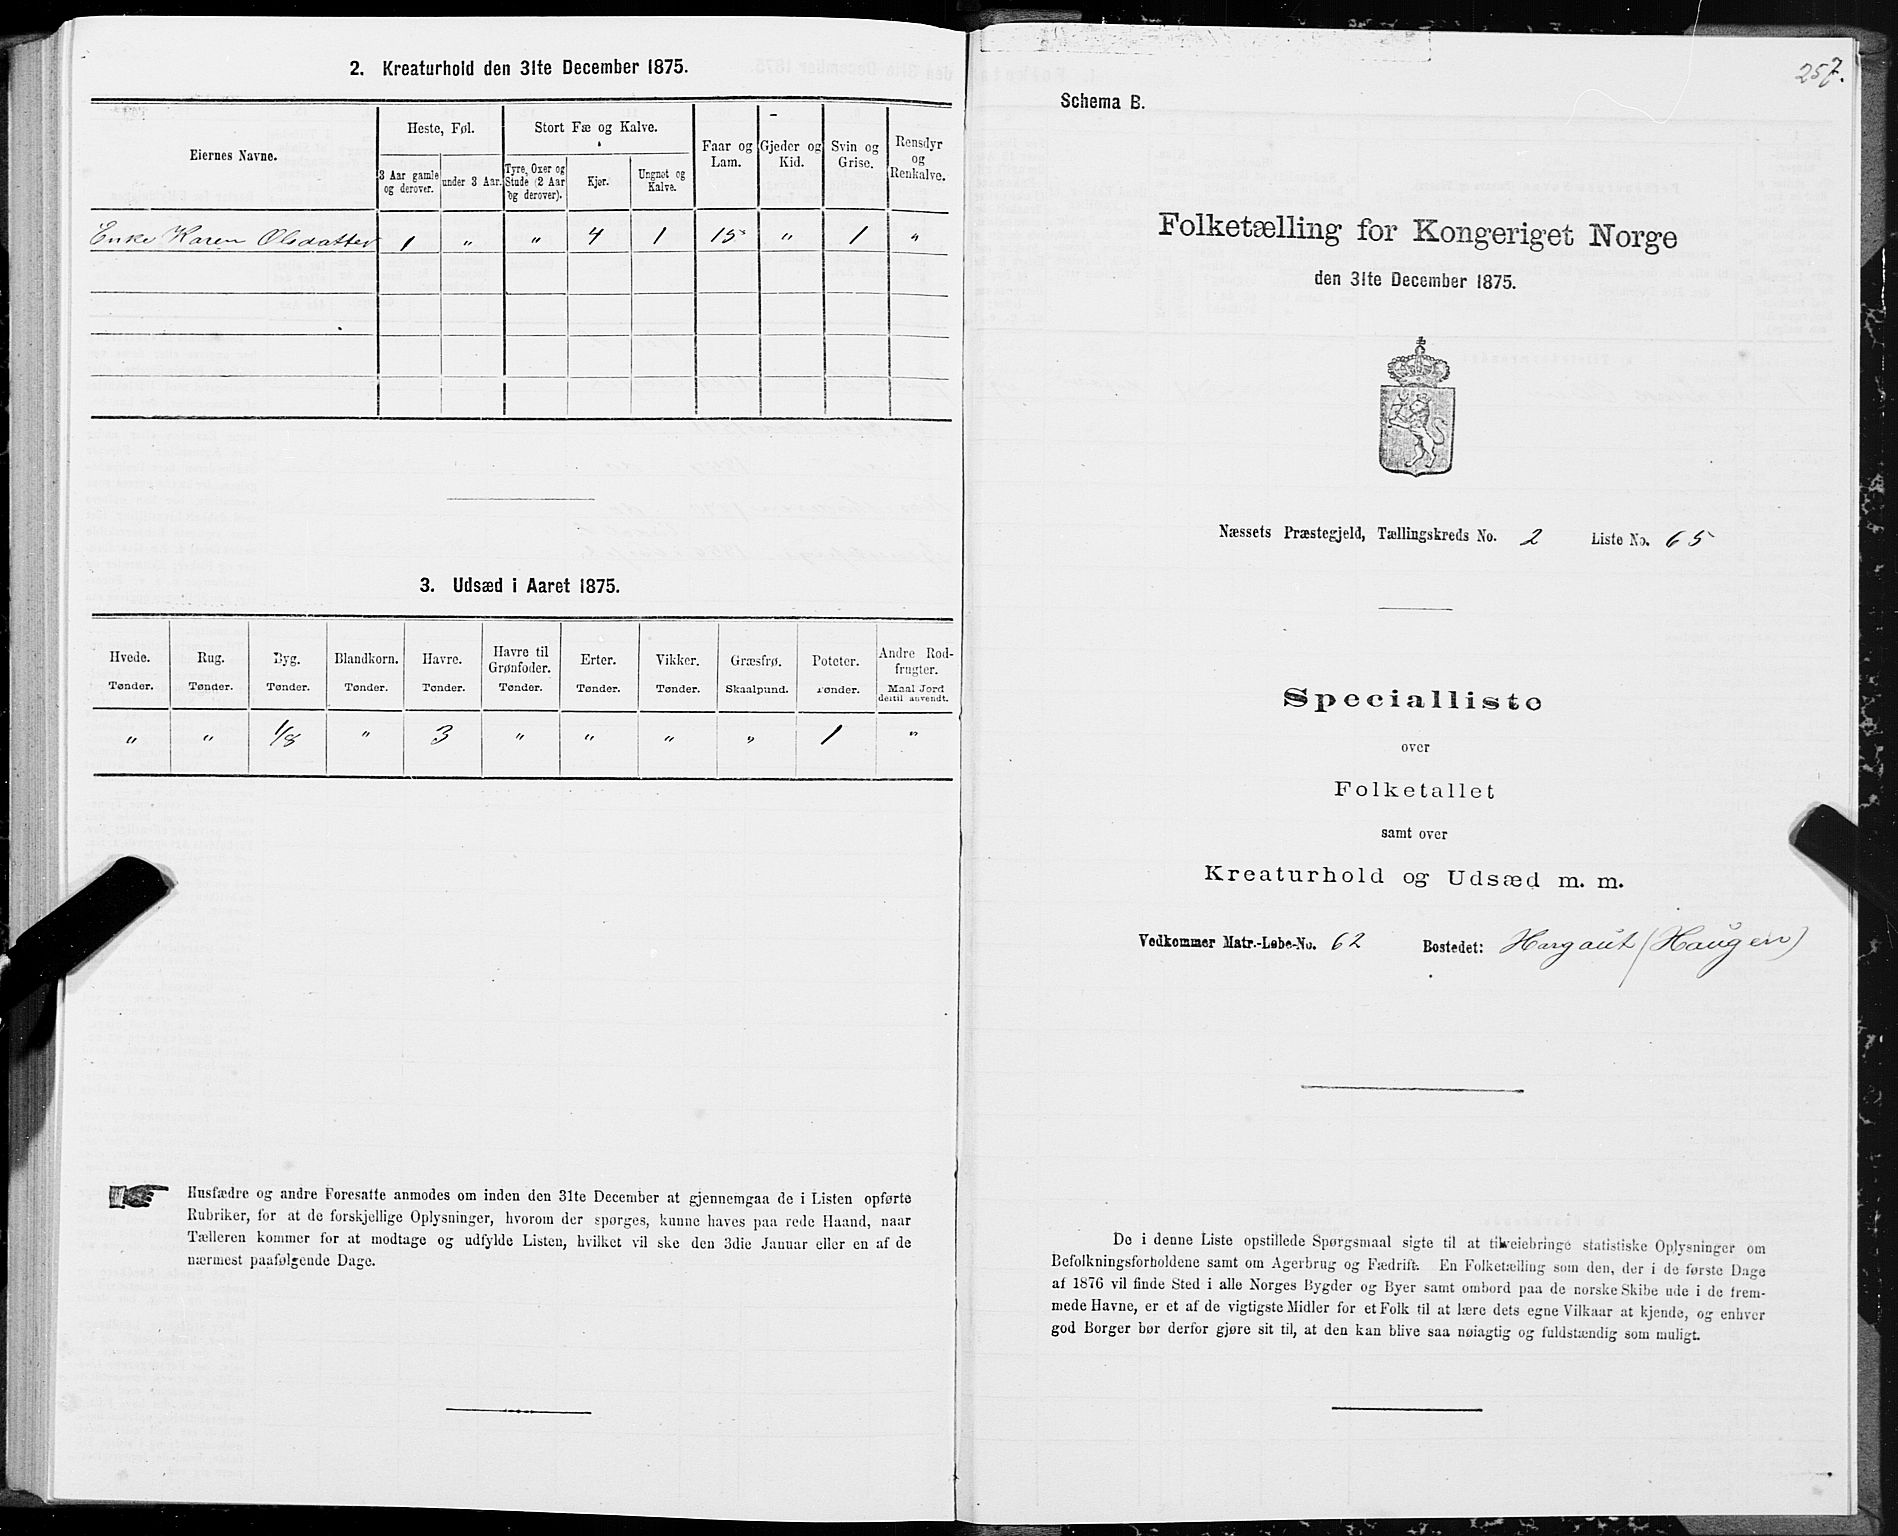 2. Kreaturhold den 31te December 1875.
Eiernes Navne.
Heste, Føl.
Stort Fæ og Kalve.
Faar og Lam.
Gjeder og Kid.
Svin og Grise.
Rensdyr og Renkalve.
3 Aar gamle og derover.
under 3 Aar.
Tyre, Oxer og Stude (2 Aar og derover).
Kjør.
Ungnøt og Kalve.
Enke Karen Olsdatter 1 " " 4 1 15 " 1 "
3. Udsæd i Aaret 1875.
Hvede. Tønder.
Rug. Tønder.
Byg. Tønder.
Blandkorn. Tønder.
Havre. Tønder.
Havre til Grønfoder. Tønder.
Erter. Tønder.
Vikker. Tønder.
Græsfrø. Skaalpund.
Poteter. Tønder.
Andre Rodfrugter. Maal Jord dertil anvendt.
" " 1/8 " 3 " " " " 1 "
Husfædre og andre Foresatte anmodes om inden den 31te December at gjennemgaa de i Listen opførte
Rubriker, for at de forskjellige Oplysninger, hvorom der spørges, kunne haves paa rede Haand, naar
Tælleren kommer for at modtage og udfylde Listen, hvilket vil ske den 3die Januar eller en af de
nærmest paafølgende Dage.
257.
Schema B.
Folketælling for Kongeriget Norge
den 31te December 1875.
Næssets Præstegjeld, Tællingskreds No. 2 Liste No. 65
Specialliste
over
Folketallet
samt over
Kreaturhold og Udsæd m. m.
Vedkommer Matr.-Løbe-No. 62 Bostedet: Hargaut (Haugen)
De i denne Liste opstillede Spørgsmaal sigte til at tilveiebringe statistiske Oplysninger om
Befolkningsforholdene samt om Agerbrug og Fædrift. En Folketælling som den, der i de første Dage
af 1876 vil finde Sted i alle Norges Bygder og Byer samt ombord paa de norske Skibe ude i de frem-
mede Havne, er et af de vigtigste Midler for et Folk til at lære dets egne Vilkaar at kjende, og enhver
god Borger bør derfor gjøre sit til, at den kan blive saa nøiagtig og fuldstændig som muligt.